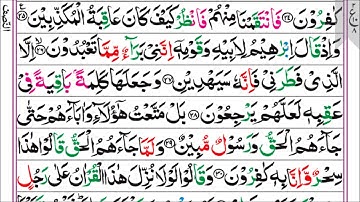 كٰفِرُوْنَ ﴿۲۴﴾ فَانْتَقَمْنَا مِنْهُمْ فَانْظُرْ كَيْفَ كَانَ عَاقِبَةُ الْمُكَذِّبِيْنَ ﴿۲۵﴾
وَاِذْ قَالَ اِبْرٰهِيْمُ لِاَبِيْهِ وَقَوْمِهٖۤ اِنَّنِيْ بَرَآءٌ مِّمَّا تَعْبُدُوْنَ ﴿۲۶﴾ اِلَّا
الَّذِيْ فَطَرَنِيْ فَاِنَّهٗ سَيَهْدِيْنِ ﴿۲۷﴾ وَجَعَلَهَا كَلِمَةًۢ بَاقِيَةً فِيْ
عَقِبِهٖ لَعَلَّهُمْ يَرْجِعُوْنَ ﴿۲۸﴾ بَلْ مَتَّعْتُ هٰۤؤُلَآءِ وَاٰبَآءَهُمْ حَتّٰى
جَآءَهُمُ الْحَقُّ وَرَسُوْلٌ مُّبِيْنٌ ﴿۲۹﴾ وَلَمَّا جَآءَهُمُ الْحَقُّ قَالُوْا هٰذَا
سِحْرٌ وَّاِنَّا بِهٖ كٰفِرُوْنَ ﴿۳۰﴾ وَقَالُوْا لَوْلَا نُزِّلَ هٰذَا الْقُرْاٰنُ عَلٰى رَجُلٍ